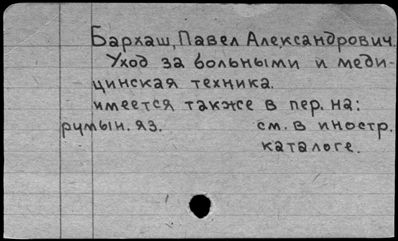 Бархаш, Павел Александрович.
Уход за больными и меди-
цинская техника.
имеется также в пер. на:
румын. яз. см. в иностр.
каталоге.